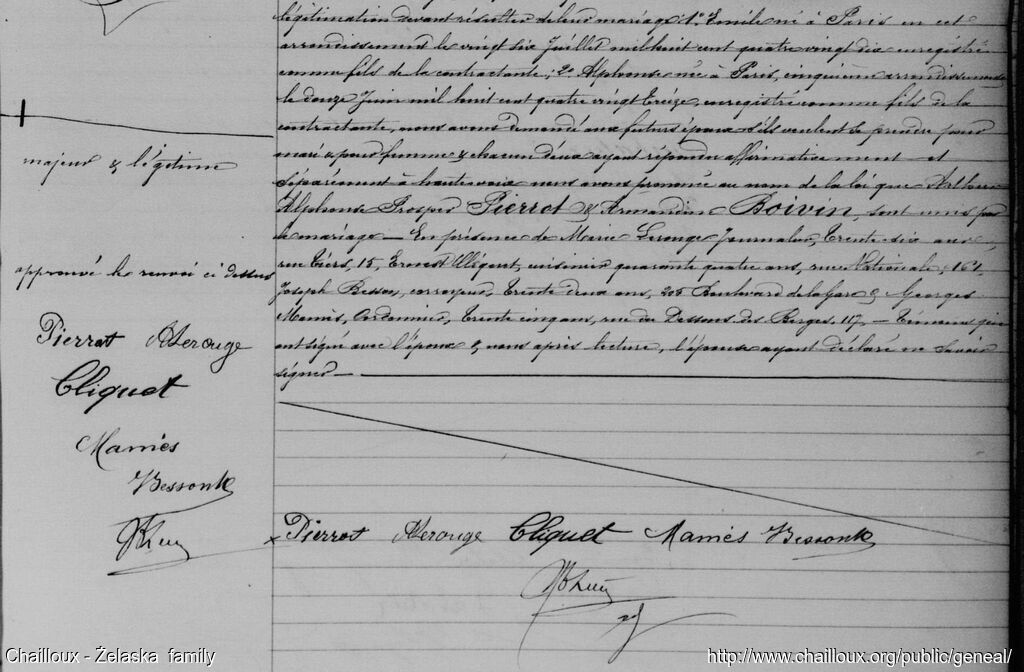 légitimation devant résulter de leur mariage : 1° Emile né à Paris en cet
arrondissement le vingt six Juillet mil huit cent quatre vingt dix enregistré
comme fils de la contractante ; 2° Alphonse né à Paris, cinquième arrondissement
le douze Juin mil huit cent quatre vingt treize, enregistré comme fils de la
contractante, nous avons demandé aux futurs époux s'ils veulent se prendre pour
mari & pour femme & chacun d'eux ayant répondu affirmativement et
séparément à haute voix nous avons prononcé au nom de la loi que Arthur
Alphonse Prosper Pierrot & Armandine Boivin, sont unis par
le mariage — En présence de Marie Lerouge Journalier, trente six ans,
rue 15, Ernest cuisinier quarante quatre ans, rue Nationale, 161
Joseph Besson, corroyeur, trente deux ans, 205 Boulevard de la Gare & Georges
Mamès, Cordonnier, trente cinq ans, rue du Dessous des Berges, 117, — Témoins qui
ont signé avec l'époux & nous après lecture, l'épouse ayant déclaré ne savoir
signer —
majeur & légitime
approuvé le renvoi ci dessus
Pierrot Lerouge
Cliquet
Mamès
Besson
Pierrot Lerouge Cliquet Mamès Besson
Chailloux - Želaska family
http://www.chailloux.org/public/geneal/